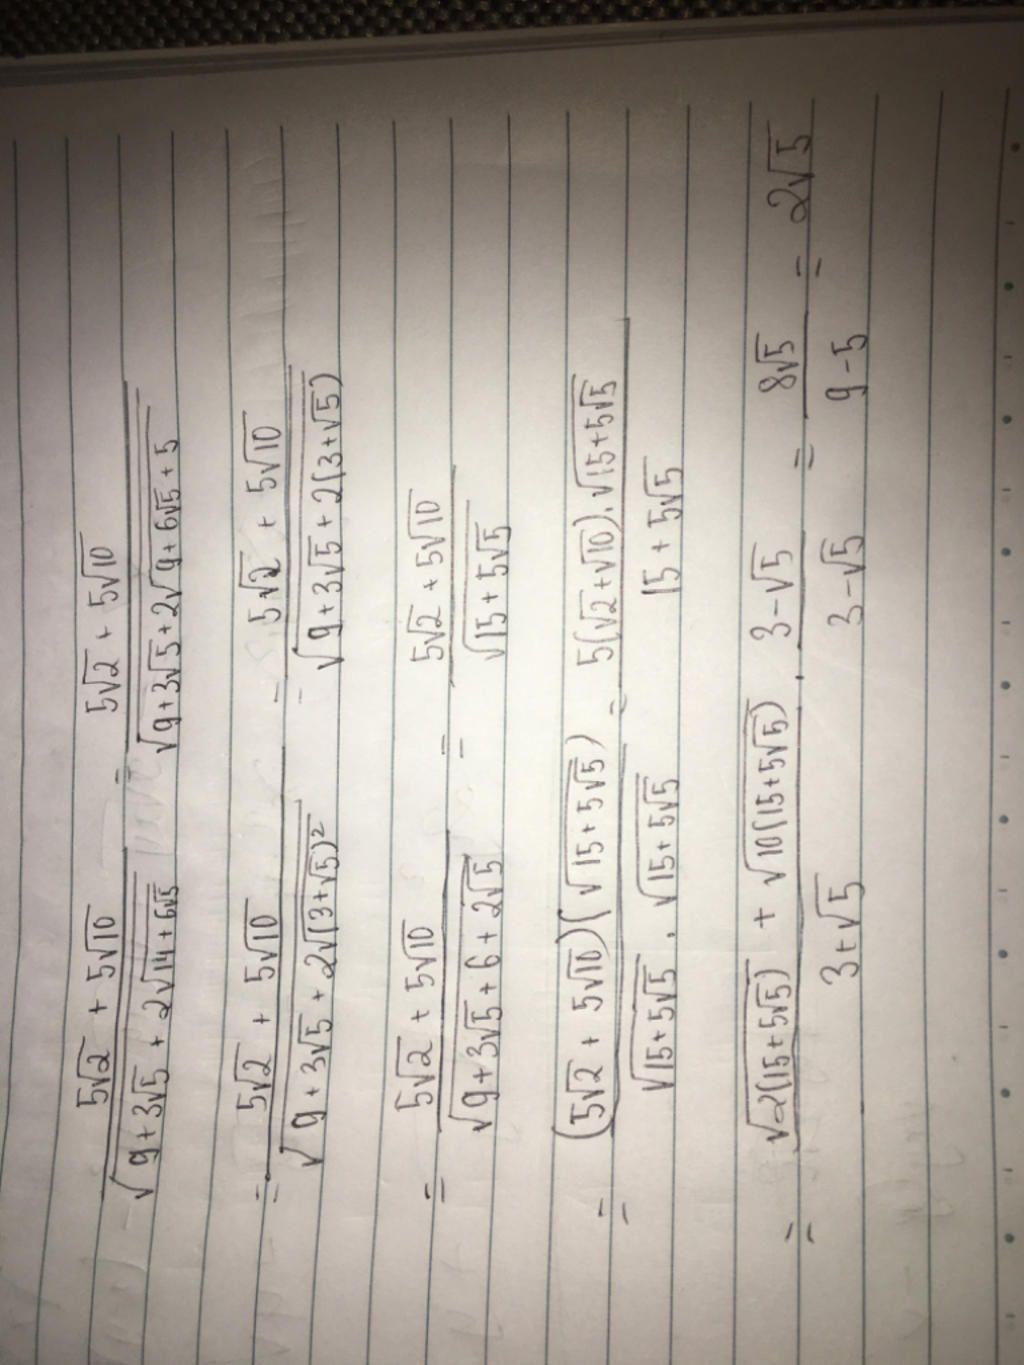 (5√2 + 5√10)/√(9+3√5 + 2√(14+6√5)) = (5√2 + 5√10)/√(9+3√5+2√(9+6√5+5))
= (5√2 + 5√10)/√(9+3√5 + 2√(3+√5)²) = (5√2 + 5√10)/√(9+3√5+2(3+√5))
= (5√2 + 5√10)/√(9+3√5+6+2√5) = (5√2 + 5√10)/√(15+5√5)
= (5√2 + 5√10)(√(15+5√5))/(√(15+5√5) . √(15+5√5)) = 5(√2+√10).√(15+5√5)/(15+5√5)
= (√(2(15+5√5)) + √(10(15+5√5)))/(3+√5) . (3-√5)/(3-√5) = 8√5/(9-5) = 2√5